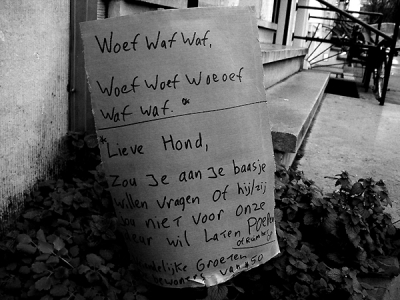 Woef Waf Waf,
Woef Woef Woeoef
Waf Waf. *
* Lieve Hond,
Zou Je aan Je baasje
willen vragen of hij/zij
jou nieT voor onze
deur wil LaTen Poepen
delijke GroeTen
bewoners van 450